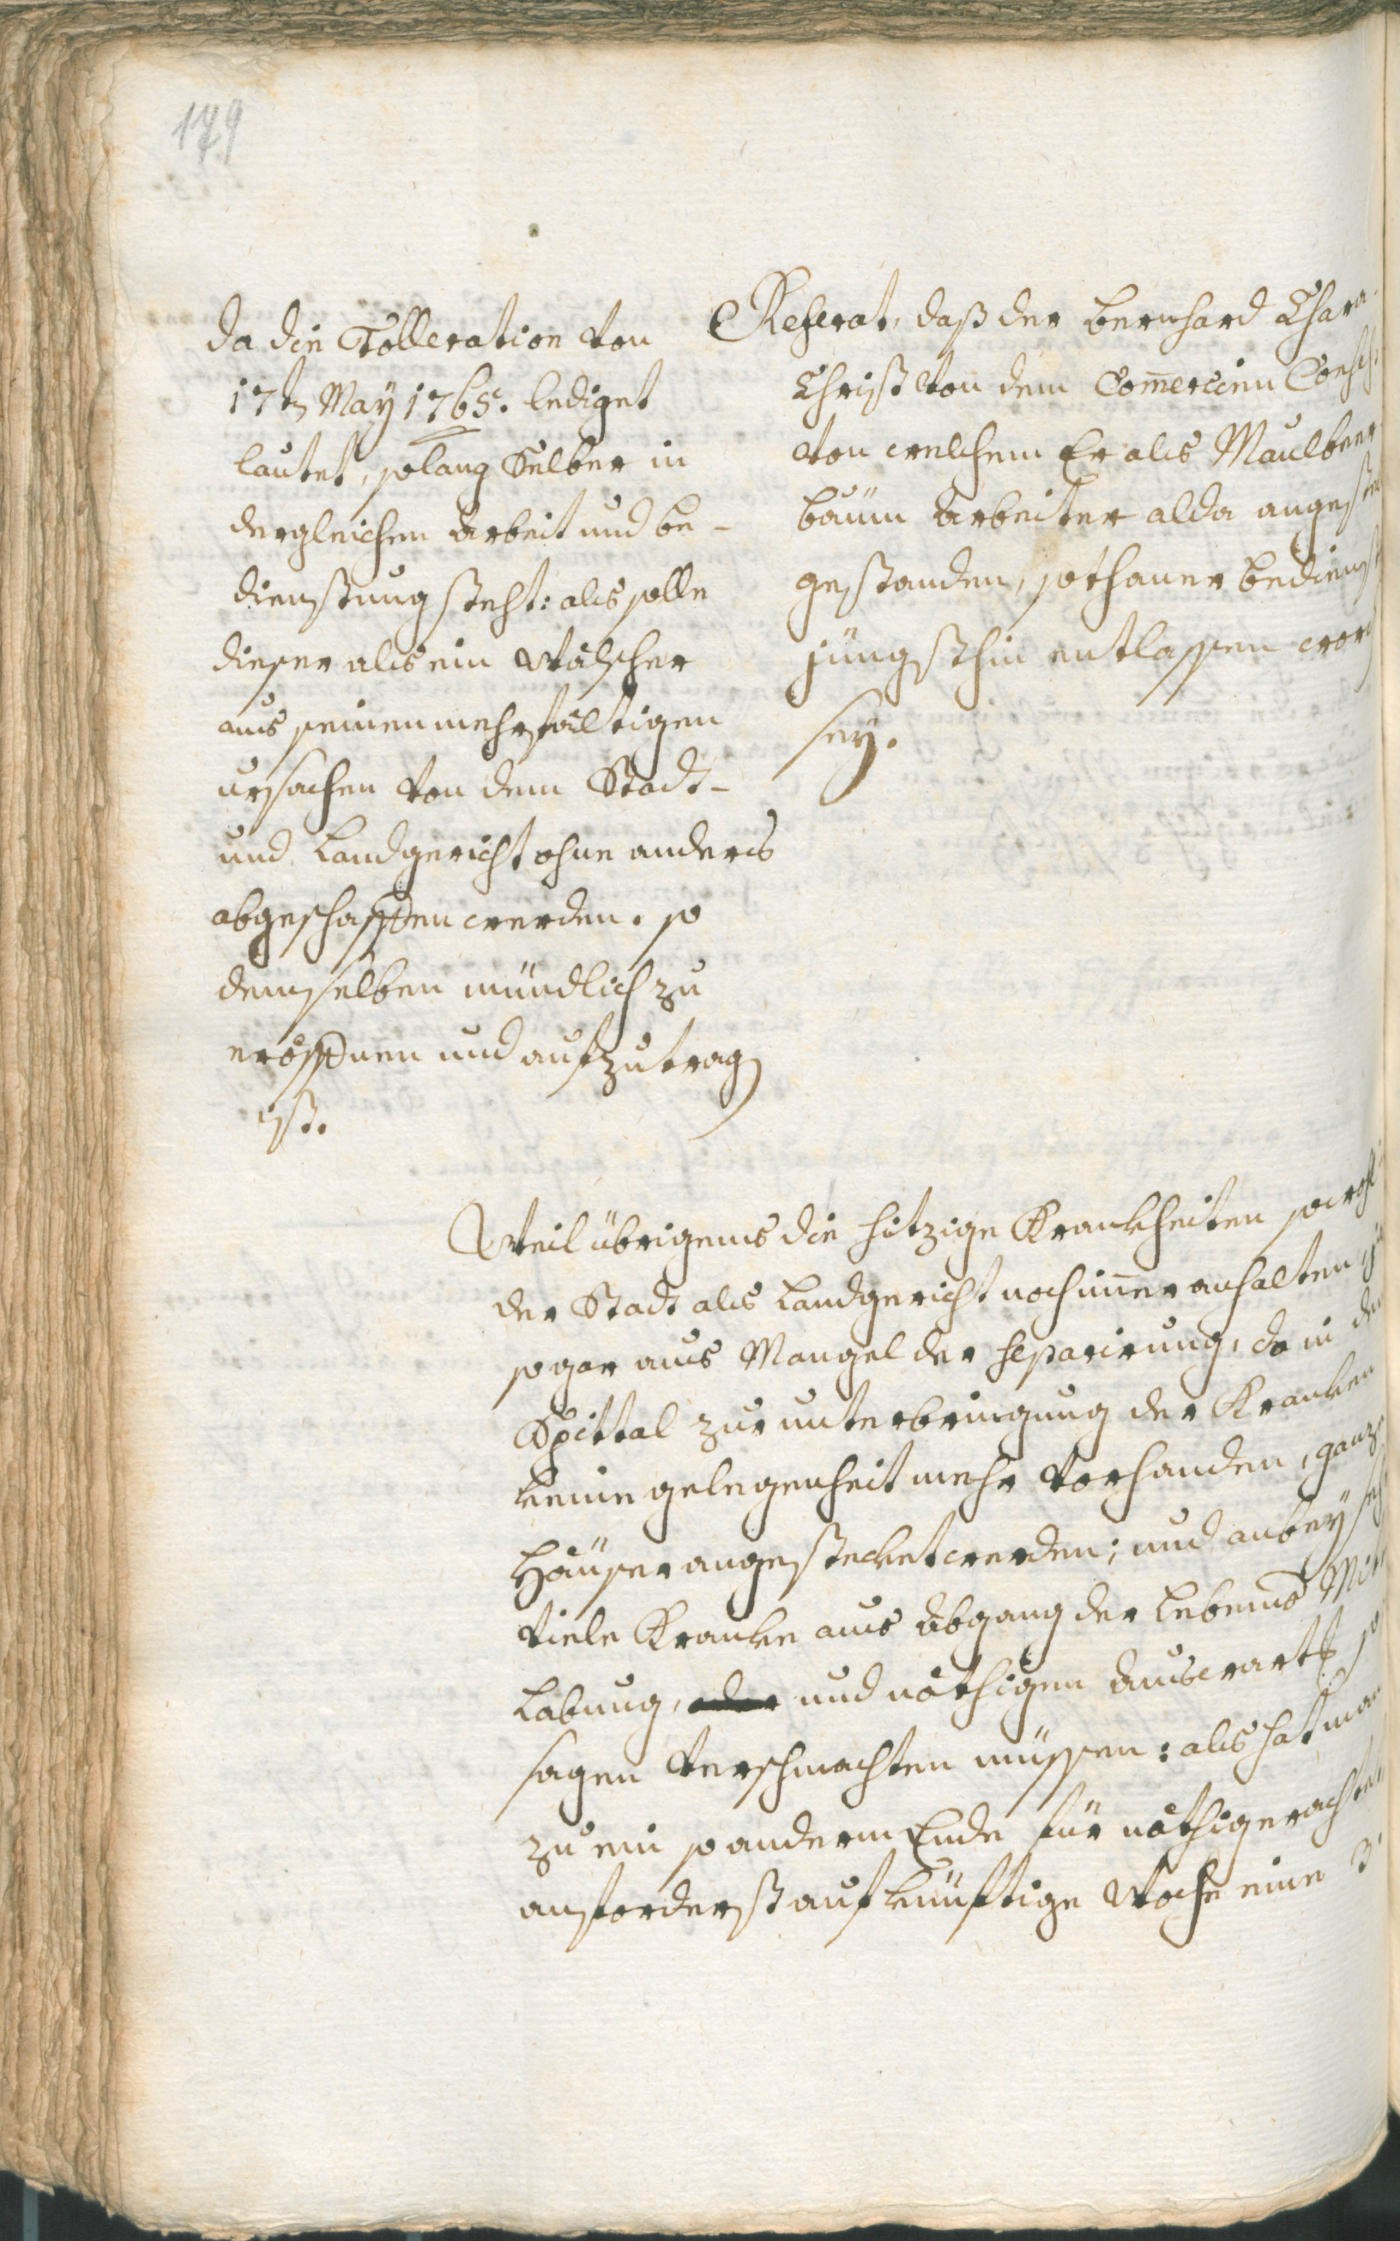 179
da die Tolleration von
17tn May 1765. lediget
lautet, solang Selber in
dergleichen arbeit und be-
dienstung steht: als solle
dieser als ein Wälscher
aus seinen mehrfältigen
ursachen von dem Stadt-
und Landgericht ohne anders
abgeschaffen werden. so
demselben mündlich zu
eröffnen und aufzutrag
ist.
Referat, daß der Bernhard Chara
Christ von dem Com̄ercien
von welchem Er als Maulbeer
baüm arbeiter alda
gestanden, sothaner
jüngsthin entlassen
sey.
Weil übrigens die hitzige Krankheiten
der Stadt als Landgericht noch im̄er anhalten,
sogar aus Mangel der separirung, da in
Spittal zur unterbringung der Kranken
keine gelegenheit mehr vorhanden, ganze
Häuser angestecket werden; und anbey
viele Kranke aus Abgang der lebens
Labung, und nöthigen auswartt so
sagen verschmachten müssen: als hat man
zu ein so anderm Ende für nöthig
anforderst auf künftige Woche eine